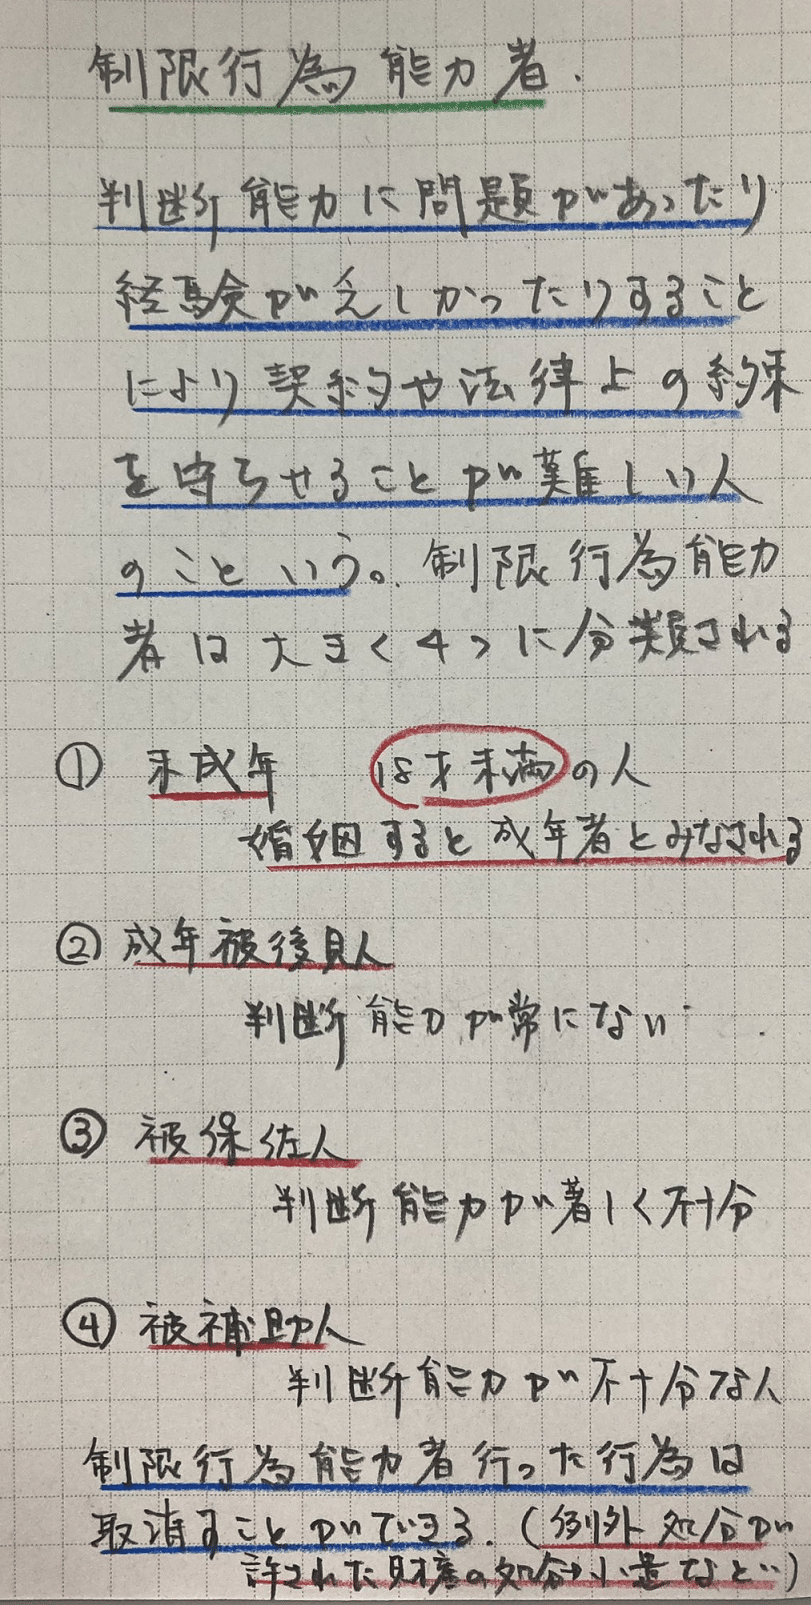 制限行為能力者.
判断能力に問題があったり
経験が乏しかったりすること
により契約や法律上の約束
を守らせることが難しい人
のこという。制限行為能力
者は大きく4つに分類される
① 未成年 18才未満の人
婚姻すると成年者とみなされる
② 成年被後見人
判断能力が常にない
③ 被保佐人
判断能力が著しく不十分
④ 被補助人
判断能力が不十分な人
制限行為能力者行った行為は
取消すことができる.(例外 処分が
許された財産の処分 小遣など)